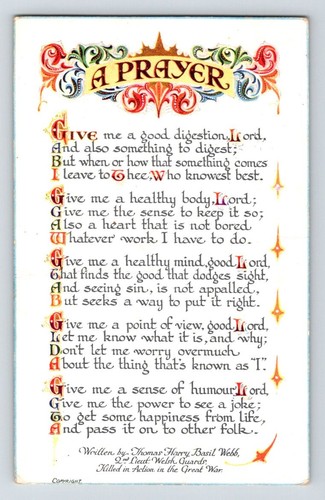 A PRAYER
Give me a good digestion, Lord,
And also something to digest;
But when or how that something comes
I leave to Thee, Who knowest best.
Give me a healthy body, Lord;
Give me the sense to keep it so;
Also a heart that is not bored
Whatever work I have to do.
Give me a healthy mind, good Lord,
That finds the good that dodges sight,
And seeing sin, is not appalled,
But seeks a way to put it right.
Give me a point of view, good Lord,
Let me know what it is, and why;
Don't let me worry overmuch
About the thing that's known as "I".
Give me a sense of humour, Lord,
Give me the power to see a joke;
To get some happiness from life,
And pass it on to other folk.
Written by Thomas Harry Basil Webb,
2nd Lieut. Welsh Guards
Killed in Action in the Great War
Copyright